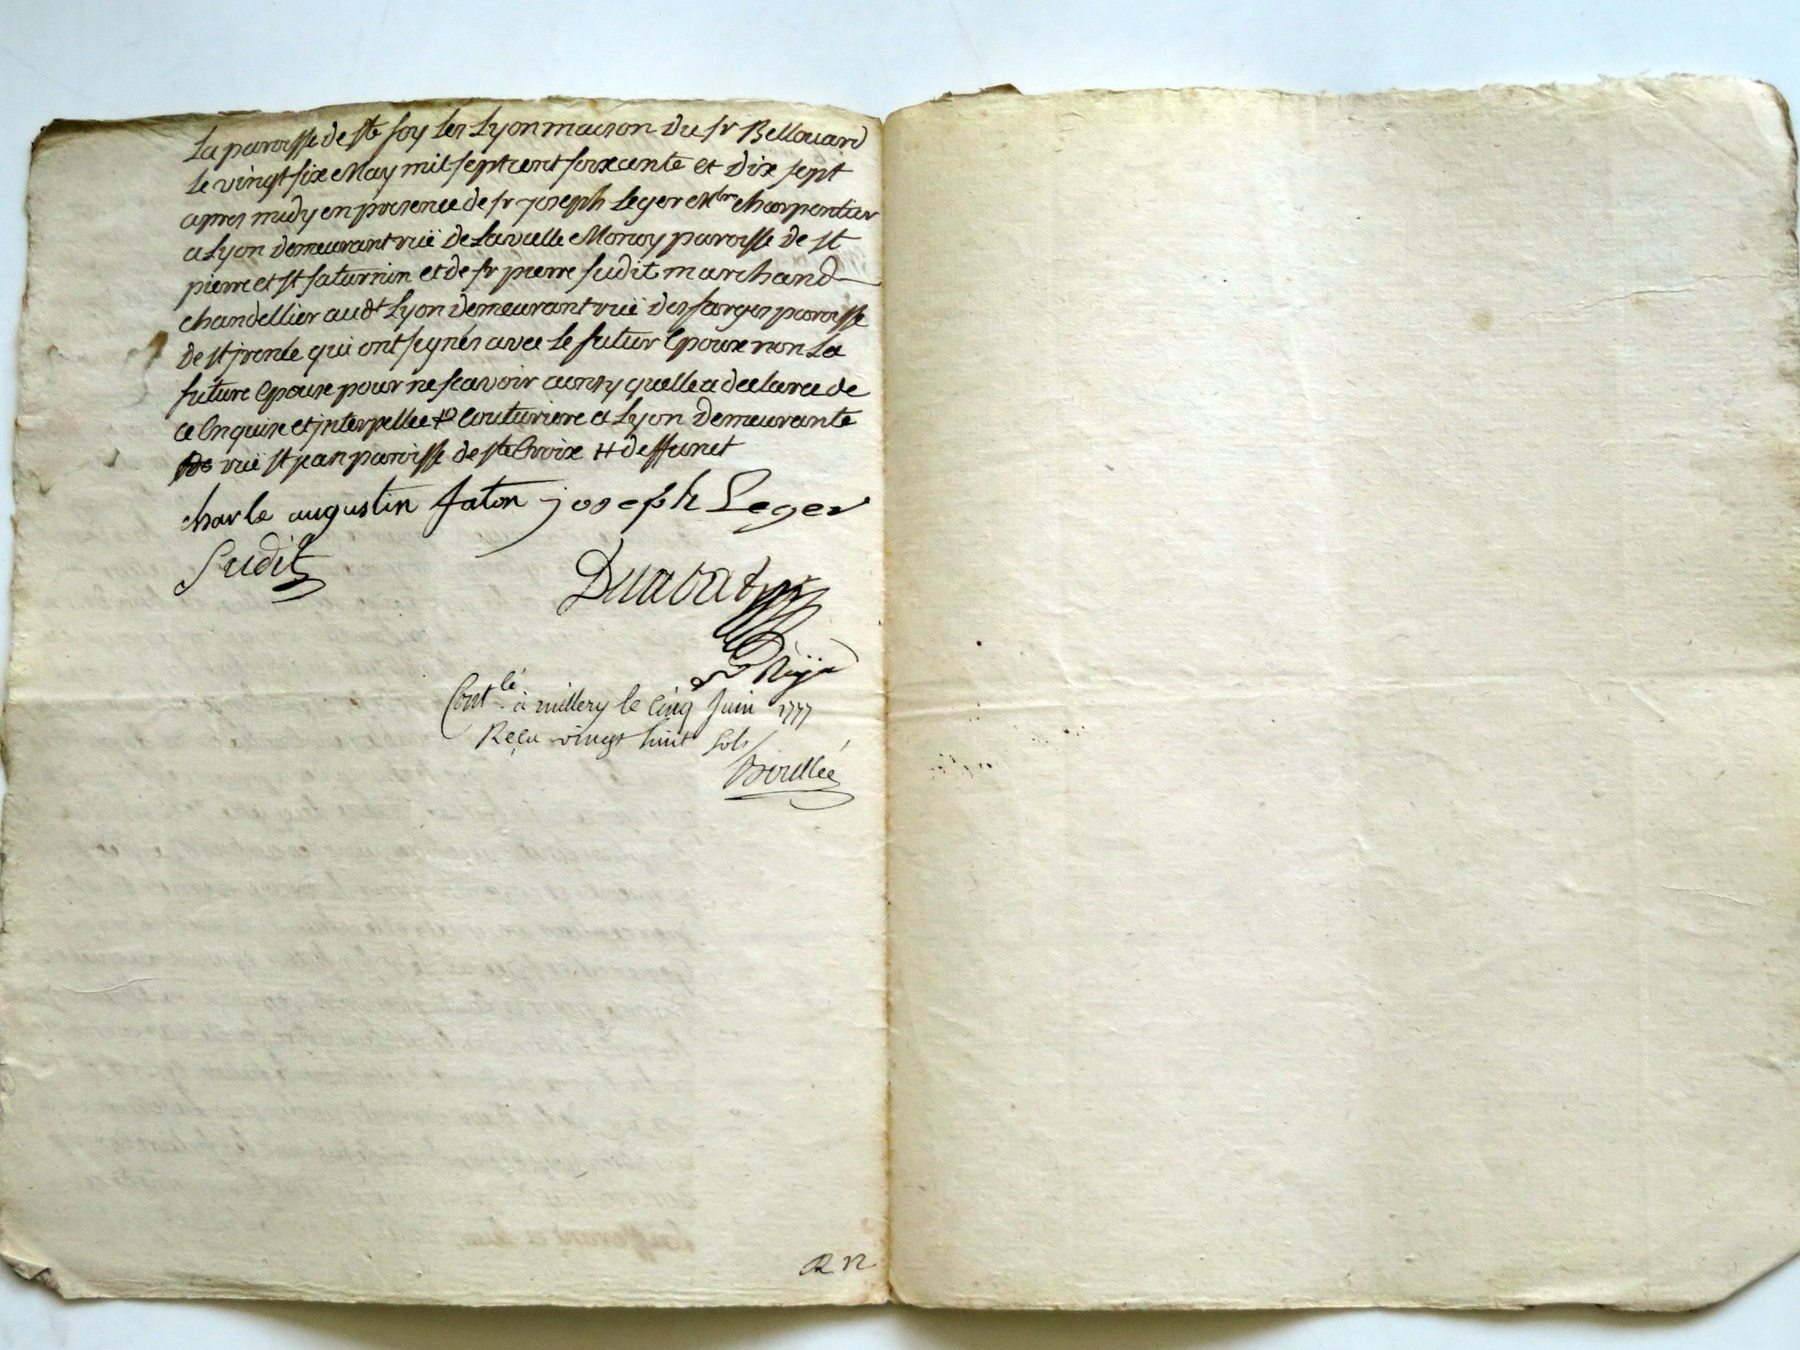 La paroisse de ste foy les Lyon maison du sr Bellouard
Le vingt six May mil sept cent soixante et dix sept
apres midy en presence de sr joseph Leger Mtre charpentier
a Lyon demeurant ruë de La vielle Monoy paroisse de st
pierre et st saturnin et de sr pierre sudit marchand
chandellier audt Lyon demeurant ruë des farges paroisse
de st jrenée qui ont signés avec Le futur Epoux non La
future Epouse pour ne scavoir ainsy quelle a declaré de
ce Enquise et jnterpellée couturiere a Lyon demeurante
ruë st jean paroisse de ste Croix # deffunct
charle augustin faton joseph Leger
Sudit
Contlé à millery le cinq Juin 1777
Reçu vingt huit sols
Boullée